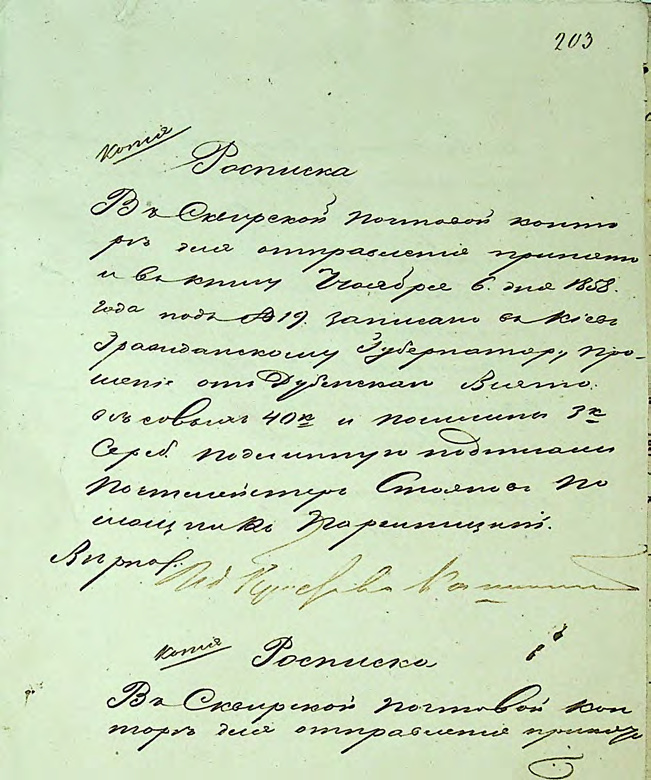 203
копія
Росписка
Въ Сквирской почтовой конто
рѣ для отправленія принято
и въ книгу Ноября 6 дня 1858.
года подъ №19. записано въ Кіевъ
Гражданскому Губернатору, про-
шеніе отъ Дубенскаи Взято.
вѣсовыхъ 40к и пошлины 3к
Сереб подлинную подписали
Почтмейстеръ Стояновъ По
мощникъ
Вѣрно:
копія
Росписка
Въ Сквирской почтовой кон
торѣ для отправленія приня